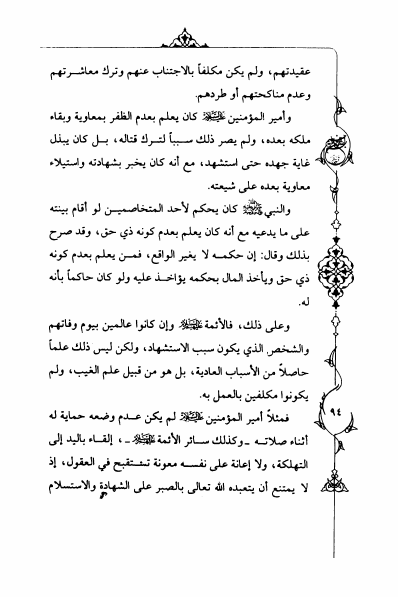 عقيدتهم، ولم يكن مكلفاً بالاجتناب عنهم وترك معاشرتهم
وعدم مناكحتهم أو طردهم.
وأمير المؤمنين كان يعلم بعدم الظفر بمعاوية وبقاء
ملكه بعده، ولم يصر ذلك سبباً لترك قتاله، بل كان يبذل
غاية جهده حتى استشهد، مع أنه كان يخبر بشهادته واستيلاء
معاوية بعده على شيعته.
والنبي كان يحكم لأحد المتخاصمين لو أقام بينته
على ما يدعيه مع أنه كان يعلم بعدم كونه ذي حق، وقد صرح
بذلك وقال: إن حكمه لا يغير الواقع، فمن يعلم بعدم كونه
ذي حق ويأخذ المال بحكمه يؤاخذ عليه ولو كان حاكماً بأنه
له.
وعلى ذلك، فالأئمة وإن كانوا عالمين بيوم وفاتهم
والشخص الذي يكون سبب الاستشهاد، ولكن ليس ذلك علماً
حاصلاً من الأسباب العادية، بل هو من قبيل علم الغيب، ولم
يكونوا مكلفين بالعمل به.
فمثلاً أمير المؤمنين لم يكن عدم وضعه حماية له
أثناء صلاته ـ وكذلك سائر الأئمة ـ، إلقاء باليد إلى
التهلكة، ولا إعانة على نفسه معونة تستقبح في العقول، إذ
لا يمتنع أن يتعبده الله تعالى بالصبر على الشهادة والاستسلام
٩٤